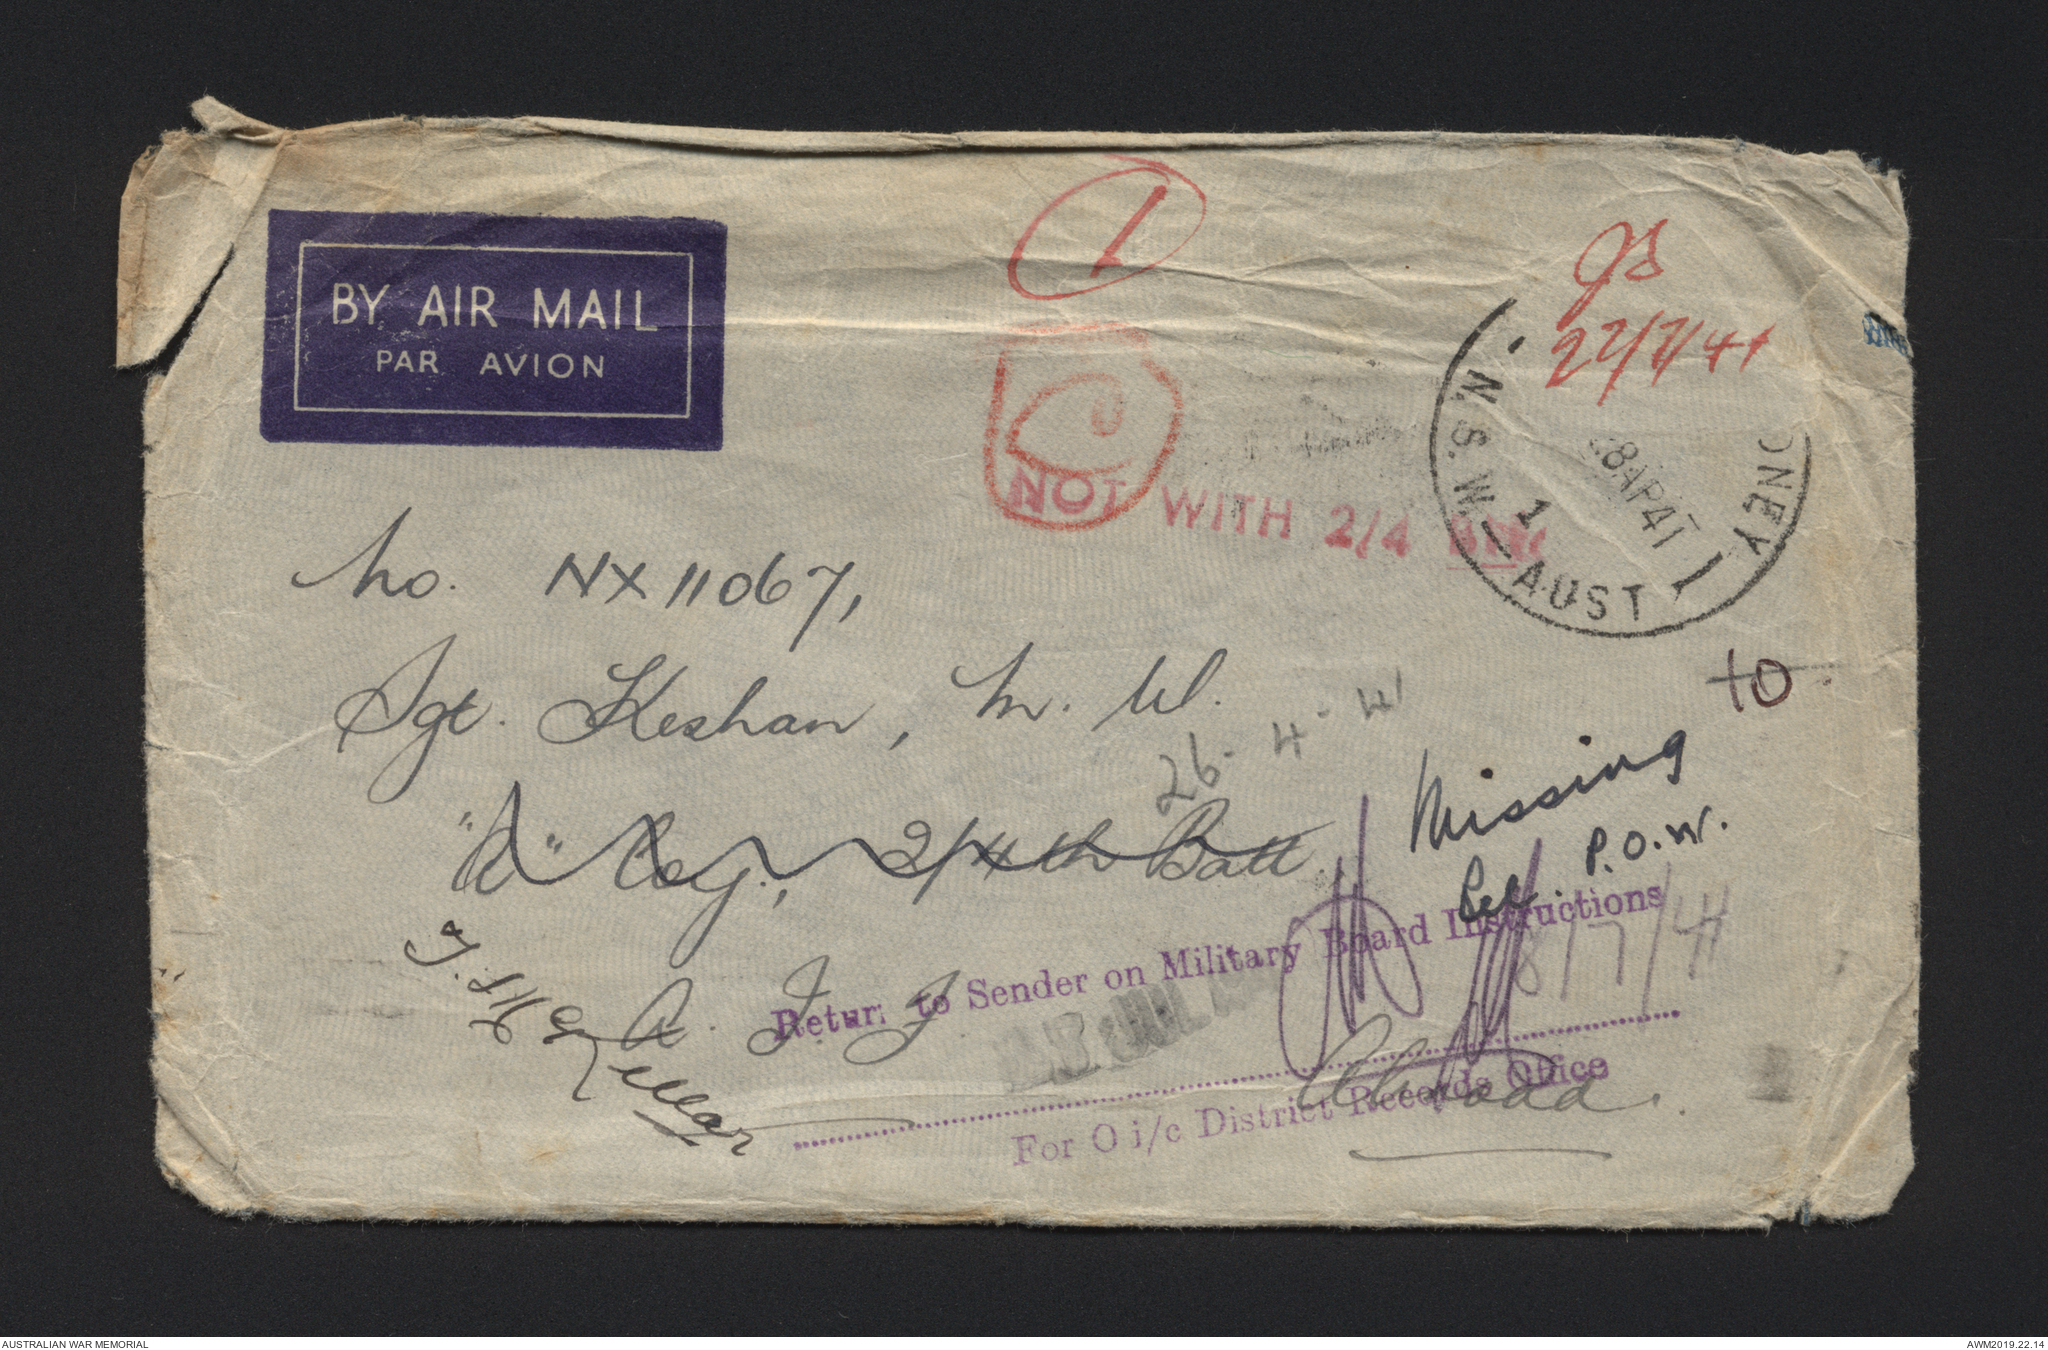 BY AIR MAIL
PAR AVION
1
JS
22/7/41
SYDNEY
N.S.W. AUST
28AP41
1
NOT WITH 2/4 BN
No. NX11067,
Sgt. Keshan, M. W.
26-4-41
"A" Coy., 2/4th Batt.
A. I. F.
Abroad.
to
Missing
Bel. P.O.W.
8/7/41
Return to Sender on Military Board Instructions
For O i/c District Records Office
AUSTRALIAN WAR MEMORIAL
AWM2019.22.14